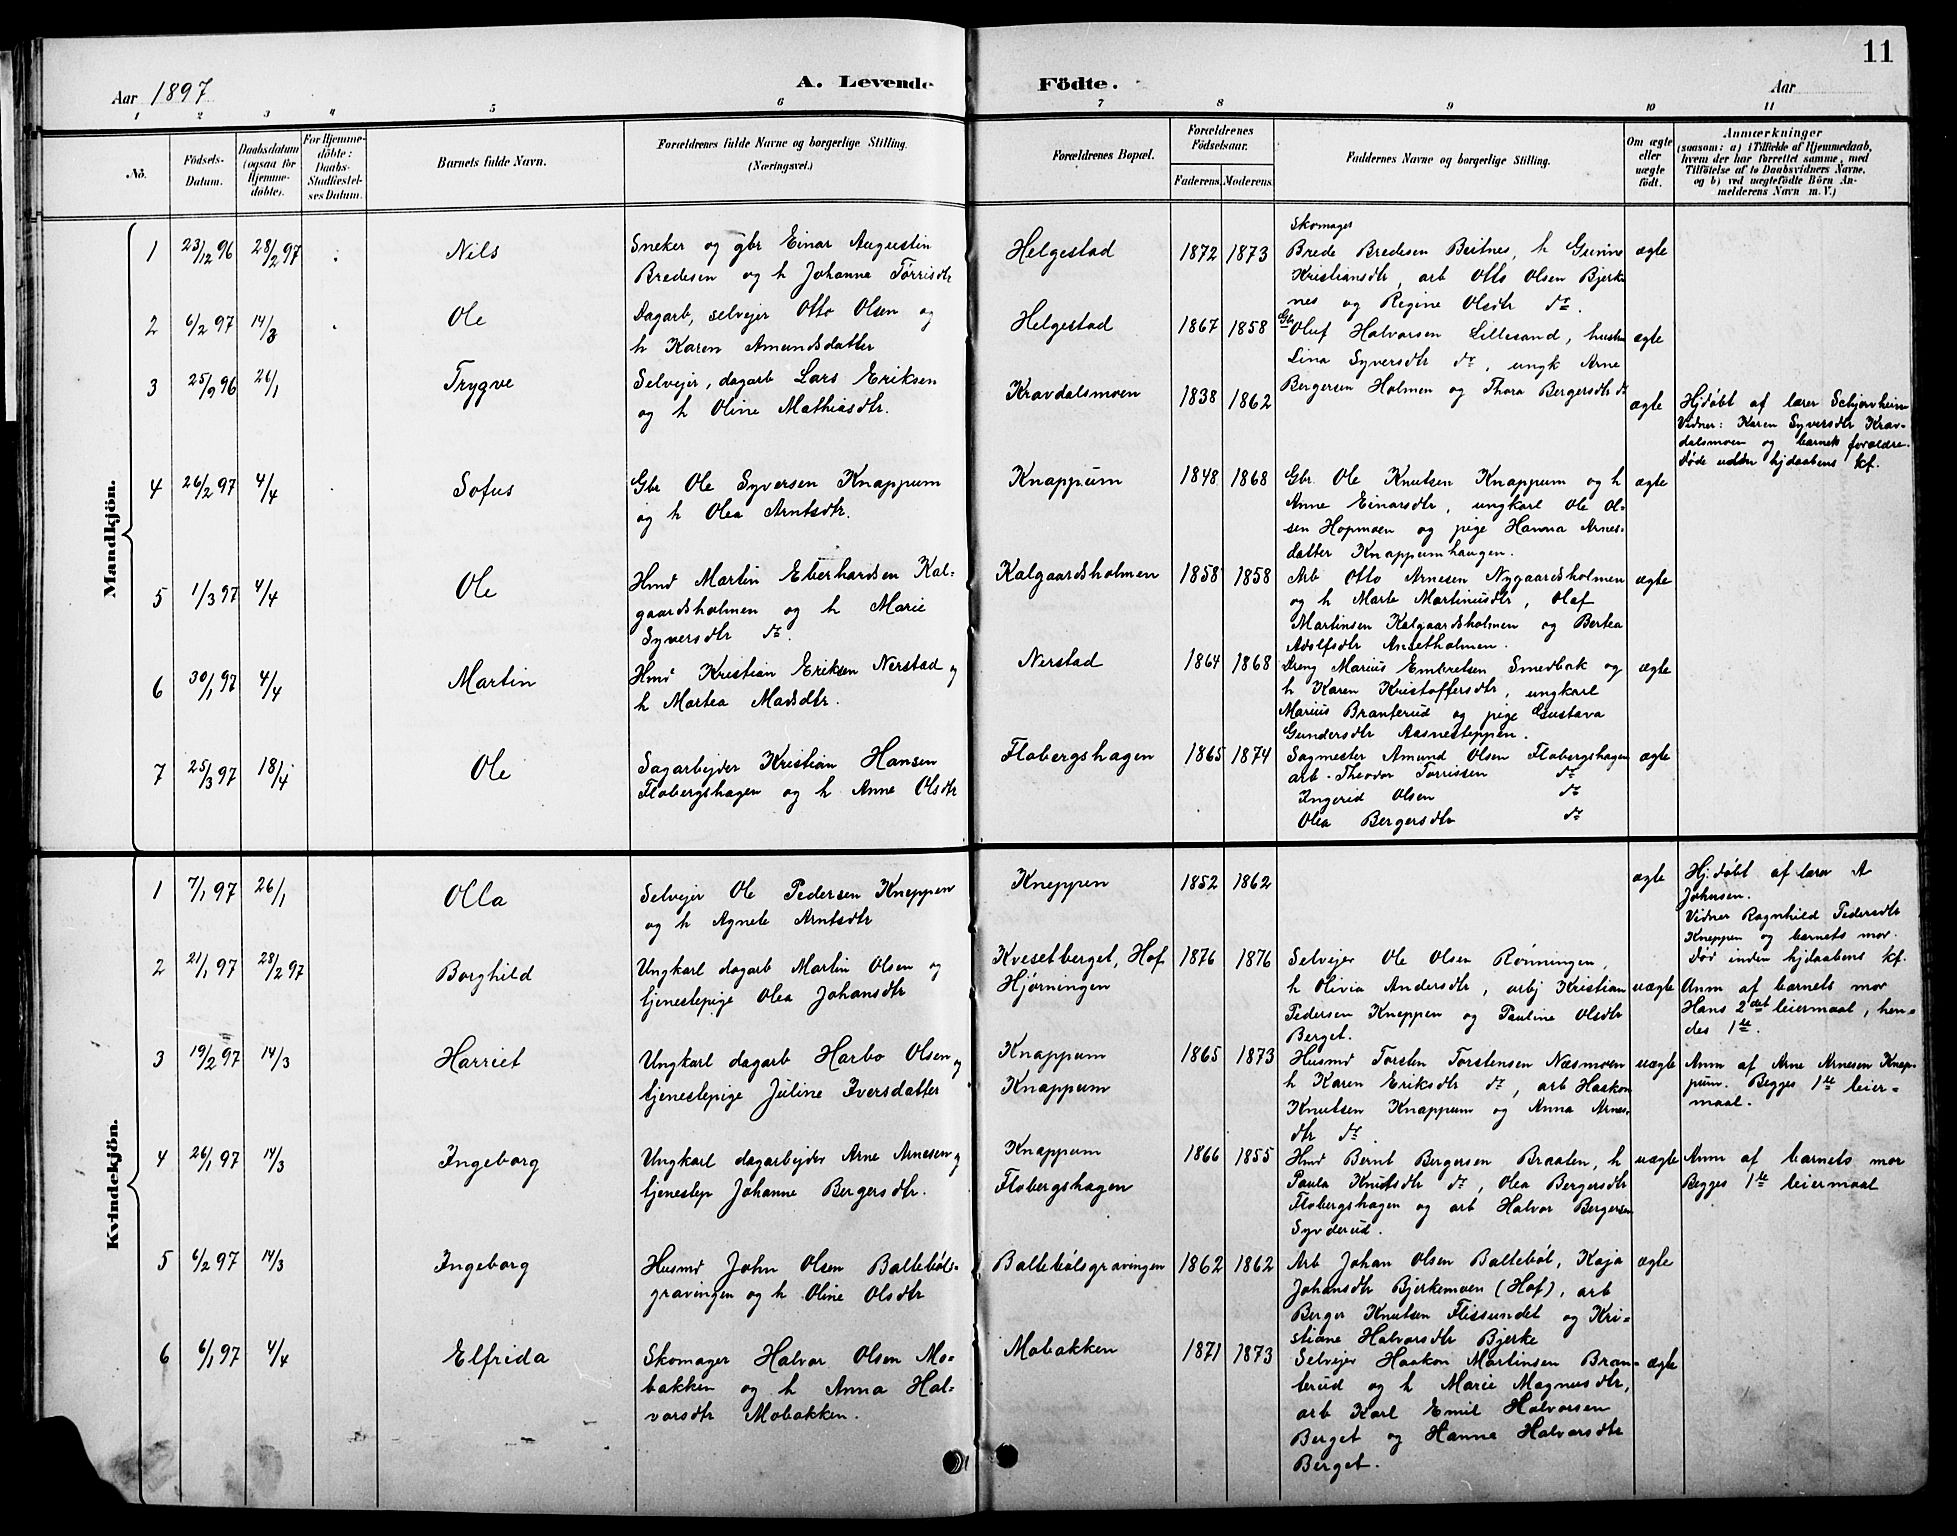 11
Aar 1897
A. Levende Födte.
Aar
1 2 3 4 5 6 7 8 9 10 11
No.
Födsels-Datum.
Daabsdatum (ogsaa for Hjemme-döbte).
For Hjemme-döbte: Daabs-Stadfæstel-ses Datum.
Barnets fulde Navn.
Forældrenes fulde Navne og borgerlige Stilling.
(Næringsvei.)
Forældrenes Bopæl.
Forældrenes Födselsaar.
Faderens. Moderens.
Faddernes Navne og borgerlige Stilling.
Om ægte eller uægte födt.
Anmærkninger
(saasom: a) i Tilfælde af Hjemmedaab, hvem der har forrettet samme, med Tilföielse af to Daabsvidners Navne, og b) ved uægtefödte Börn Anmelderens Navn m. V.)
Mandkjön.
1 23/12 96 28/2 97 Nils
Sneker og gbr Einar Augustin
Bredesen og h Johanne Torrisdtr
Helgestad 1872 1873
Skomager
Brede Bredesen Beitnes, h Gunine
Kristiansdtr, arb Otto Olsen Bjerke
nes og Regine Olsdtr do.
ægte
2 6/2 97 14/3 Ole
Dagarb, selvejer Otto Olsen og
h Karen Amundsdatter
Helgestad 1867 1858
Gbr Oluf Halvorsen Lillesand, hustru
Lina Syversdtr do, ungk Arne
Bergersen Holmen og Thora Bergersdtr do
ægte
3 25/9 96 26/1 Trygve
Selvejer, dagarb Lars Eriksen
og h Oline Mathiasdtr.
Kravdalsmoen 1838 1862
ægte
Hjdøbt af lærer Schjervheim
Vidner: Karen Syversdtr Krav-
dalsmoen og barnets forældre.
døde uden hjdaabens kf.
4 26/2 97 4/4 Sofus
Gbr Ole Syversen Knappum
og h Olea Arntsdtr.
Knappum 1848 1868
Gbr. Ole Knutsen Knappum og h
Anne Einarsdtr, ungkarl Ole Ol-
sen Hopmoen og pige Hanna Arnes-
datter Knappumhaugen.
ægte
5 1/3 97 4/4 Ole
Hmd Martin Eberhardsen Kal-
gaardsholmen og h Marie
Syversdtr do.
Kalgaardsholmen 1858 1858
Arb Otto Arnesen Nygaardsholmen
og h Marte Martinusdtr, Olaf
Martinsen Kalgaardsholmen og Bertea
Adolfsdtr Ansetholmen.
ægte
6 30/1 97 4/4 Martin
Hmd Kristian Eriksen Nerstad og
h Martea Madsdtr.
Nerstad 1864 1868
Dreng Marius Embretsen Smedbak og
h Karen Kristoffersdtr, ungkarl
Marius Branterud og pige Gustava
Gundersdtr Aasnesteppen.
ægte
7 25/3 97 18/4 Ole
Sagarbejder Kristian Hansen
Flobergshagen og h Anne Olsdtr
Flobergshagen 1865 1874
Sagmester Amund Olsen Flobergshagen
arb. Theodor Torrissen do
Ingerid Olsen do
Olea Bergersdtr do
ægte
Kvindekjön.
1 7/1 97 26/1 Olla
Selvejer Ole Pedersen Kneppen
og h Agnete Arntsdtr
Kneppen 1852 1862
ægte
Hjdøbt af lærer A
Johnsen.
Vidner Ragnhild Pedersdtr
Kneppen og barnets mor.
Død inden hjdaabens kf.
2 21/1 97 28/2 97 Borghild
Ungkarl dagarb Martin Olsen og
tjenestepige Olea Johansdtr
Kvesetberget, Hof
Hjørningen
1876 1876
Selvejer Ole Olsen Rønningen,
h Olivia Andersdtr, arbj Kristian
Pedersen Kneppen og Pauline Olsdtr
Berget.
uægte
Anm af barnets mor
Hans 2det leiermaal, hen-
des 1ste.
3 19/2 97 14/3 Harriet
Ungkarl dagarb Harbo Olsen og
tjenestepige Juline Iversdatter
Knappum
Knappum
1865 1873
Husmd Torsten Torstensen Næsmoen
h Karen Eriksdtr do, arb Haakon
Knutsen Knappum og Anna Arnes-
dtr do.
uægte
Anm af Arne Arnesen Knap-
pum. Begges 1ste leier-
maal.
4 26/1 97 14/3 Ingeborg
Ungkarl dagarbejder Arne Arnesen og
tjenestep Johanne Bergersdtr.
Knappum
Flobergshagen
1866 1855
Hmd Bernt Bergersen Braaten, h
Paula Knutsdtr do, Olea Bergersdtr
Flobergshagen og arb Halvor Bergersen
Syvderud.
uægte
Anm af barnets mor
Begges 1ste leiermaal
5 6/2 97 14/3 Ingeborg
Husmd John Olsen Baltebøls-
gravingen og h Oline Olsdtr
Baltebølsgravingen 1862 1862
Arb Johan Olsen Baltebøl, Kaja
Johansdtr Bjerkemoen (Hof), arb
Berger Knutsen Flissundet og Kri-
stiane Halvorsdtr Bjerke
ægte
6 6/1 97 4/4 Elfrida
Skomager Halvor Olsen Mo-
bakken og h Anna Hal-
vorsdtr Mobakken.
Mobakken 1871 1873
Selvejer Haakon Martinsen Bran-
terud og h Marie Magnusdtr,
arb Karl Emil Halvorsen
Berget og Hanna Halvorsdtr
Berget.
ægte